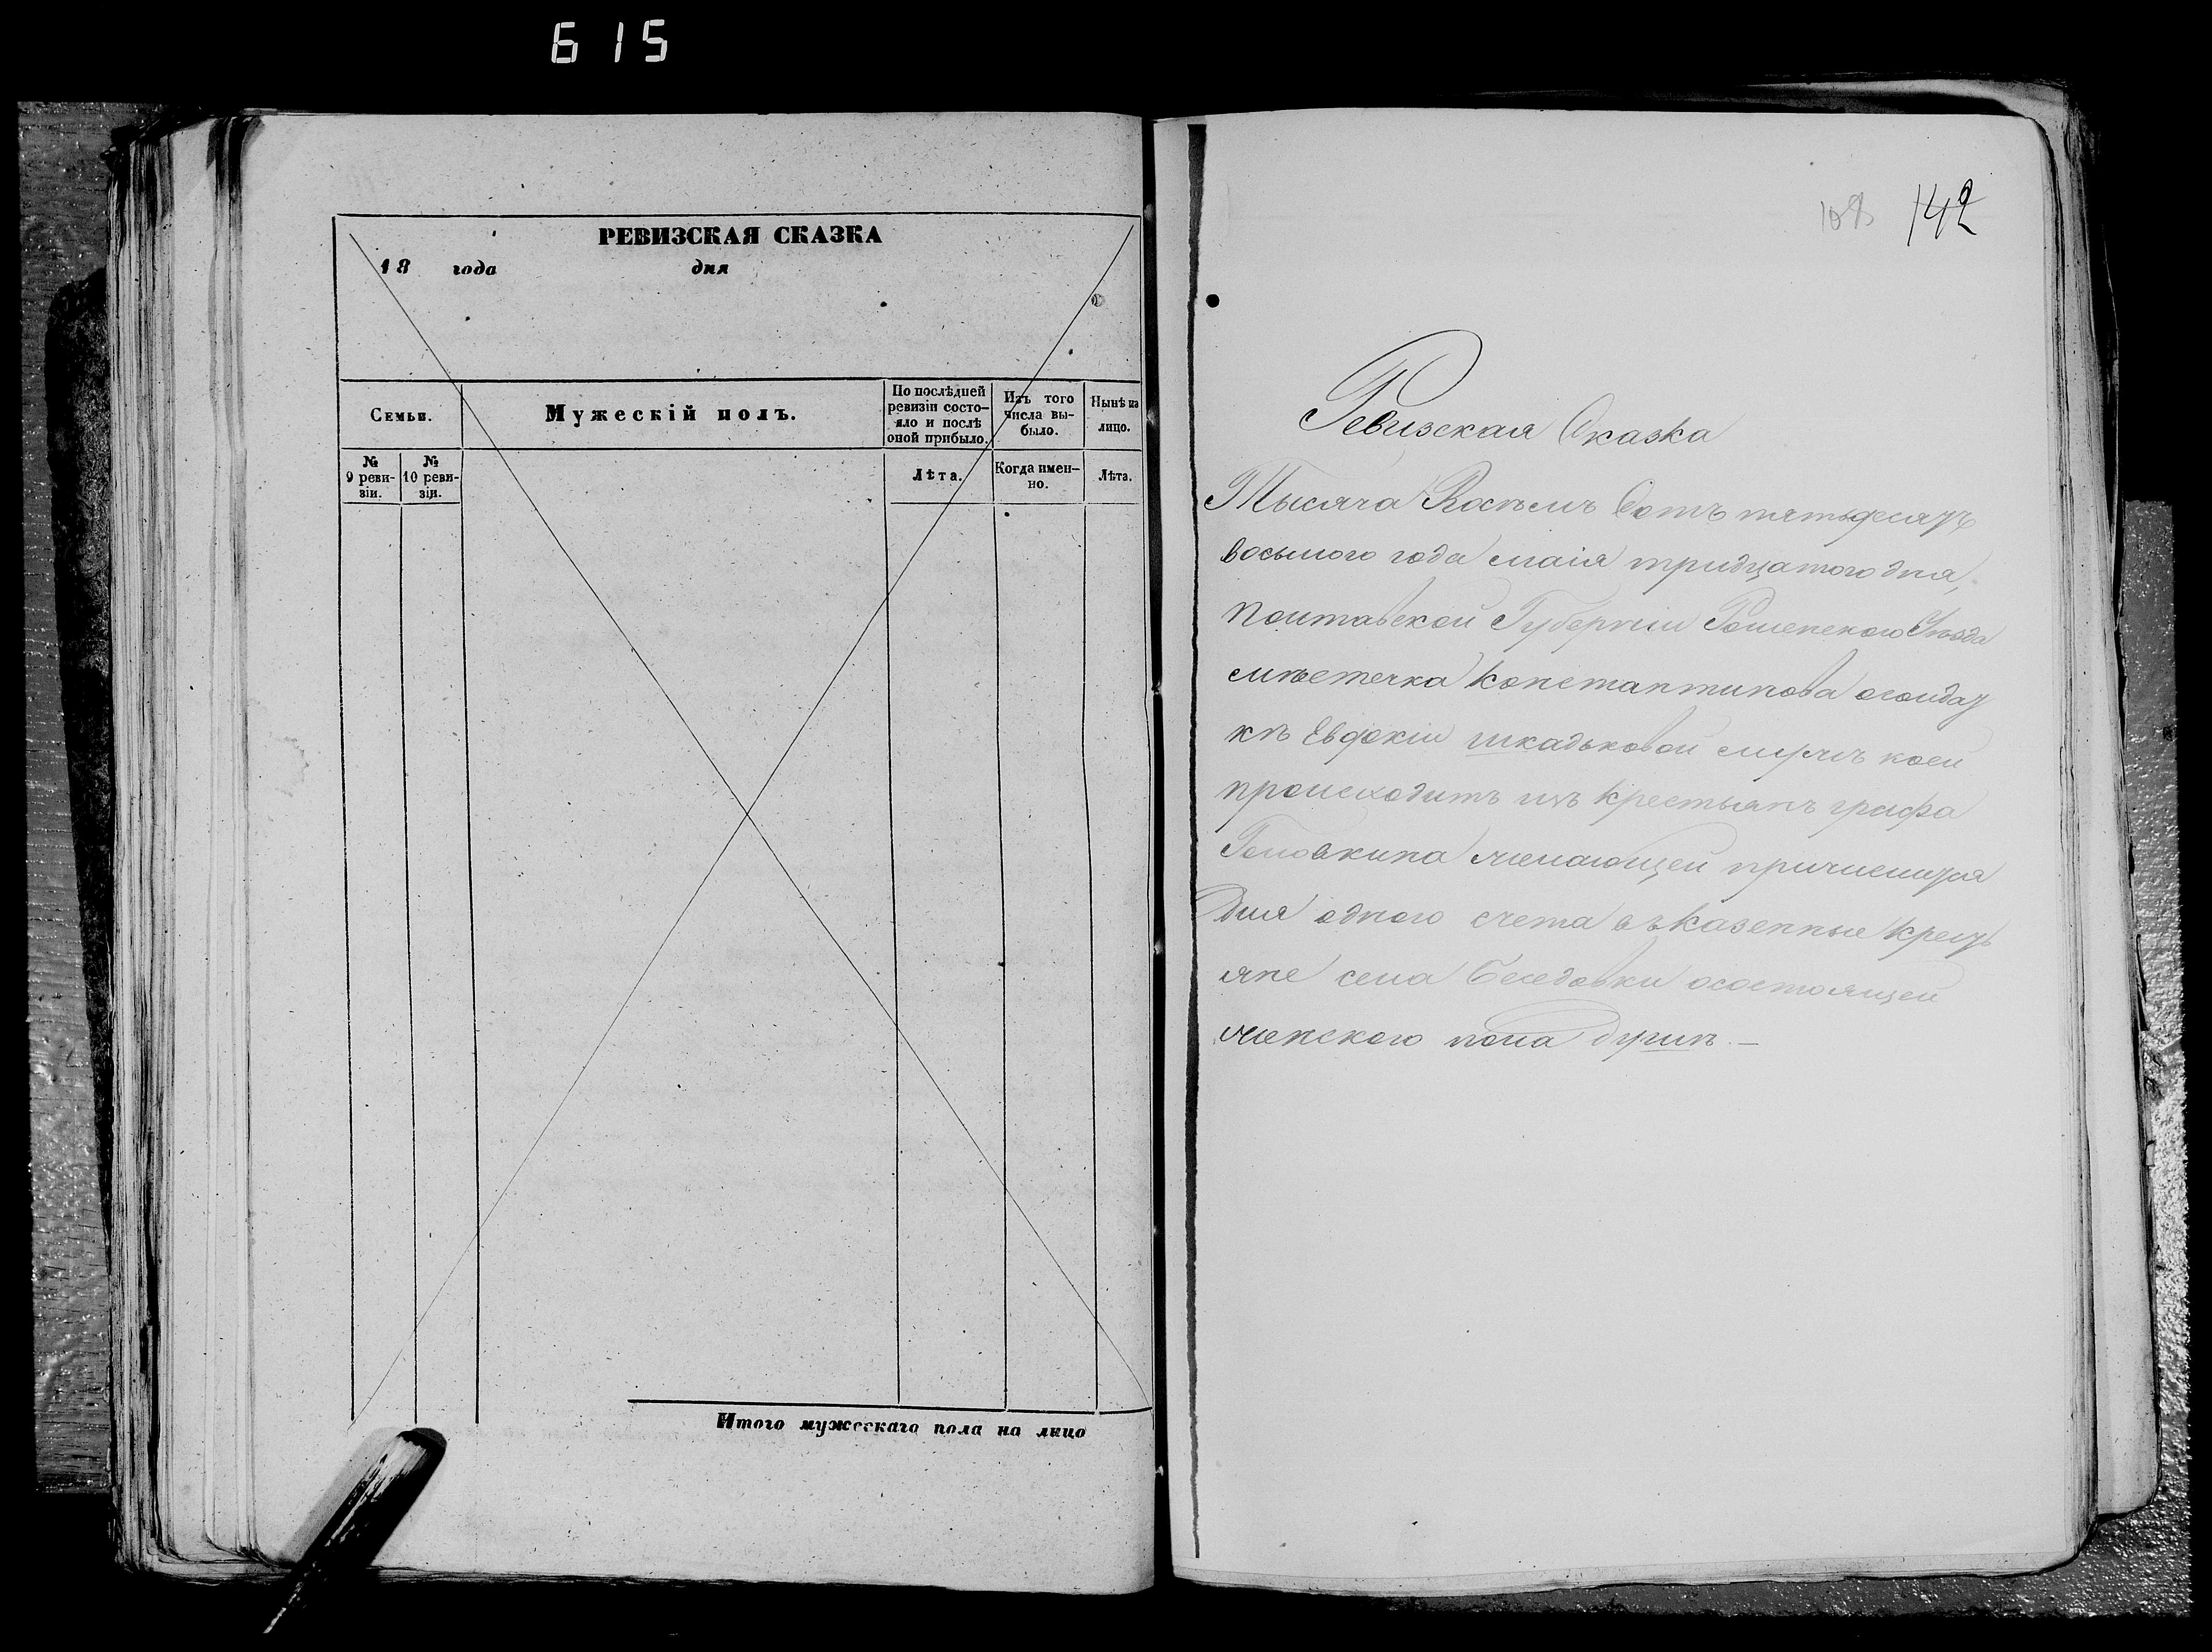 615
РЕВИЗСКАЯ СКАЗКА
18 года дня
Семьи.
Мужескій полъ.
По послѣдней ревизіи состо-
яло и послѣ
оной прибыло.
Изъ того
числа вы-
было.
Нынѣ на
лицо.
№
9 реви-
зіи.
№
10 реви-
зіи.
Лѣта.
Когда имен-
но.
Лѣта.
Итого мужескаго пола на лицо
142
Ревизская Сказка
Тысяча Восемь Сотъ пятьдесятъ
восьмого года маія тридцатого дня,
Полтавской Губерніи Роменского Уѣзда
мѣстечка Константинова о солдат
кѣ Евдокіи шкадьковой мужъ коей
происходитъ изъ крестьянъ графа
Головкина желающей причислится
Для одного счета въ казенные крест
яне села Беседовки о состоящей
женского пола душѣ. —